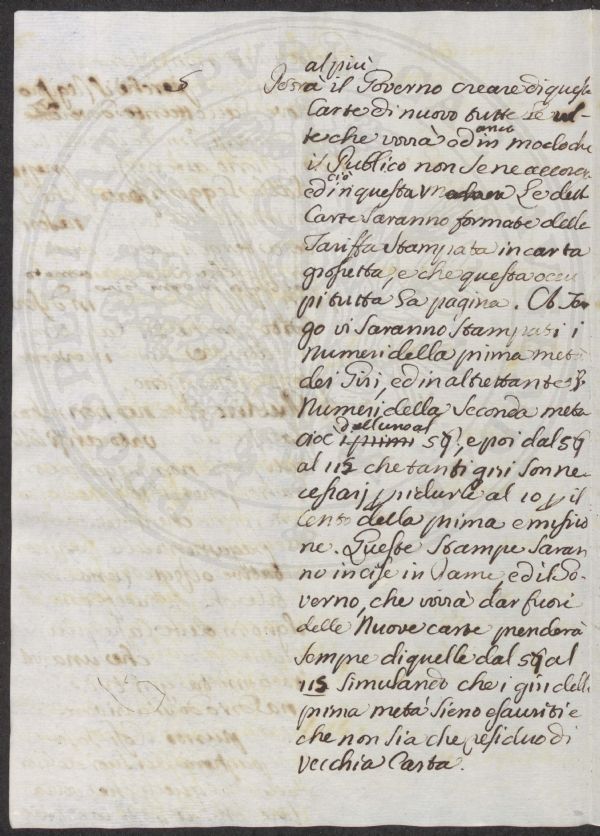 al più
Potrà il Governo creare di queste
Carte di nuovo tutte le vol-
te che vorrà ed in modo che
anco
il Publico non se ne accorga
ed in questa
ciò
Le dette
Carte saranno formate della
Tariffa stampata in carta
grossetta, e che questa occu
pi tutta la pagina. A ter
go vi saranno stampati i
Numeri della prima metà
dei Giri, ed in altrettante
Numeri della seconda metà
dall'uno al
cioè 56, e poi dal 56
al 112 che tanti giri son ne
cessarj p ridurle al 10 p il
Cento della prima emissio
ne. Queste stampe saran
no incise in Rame, ed il Go
verno, che vorrà dar fuori
delle Nuove carte prenderà
sempre di quelle dal 56 al
112 simulando che i giri della
prima metà sieno esauriti e
che non sia che residuo di
vecchia Carta.